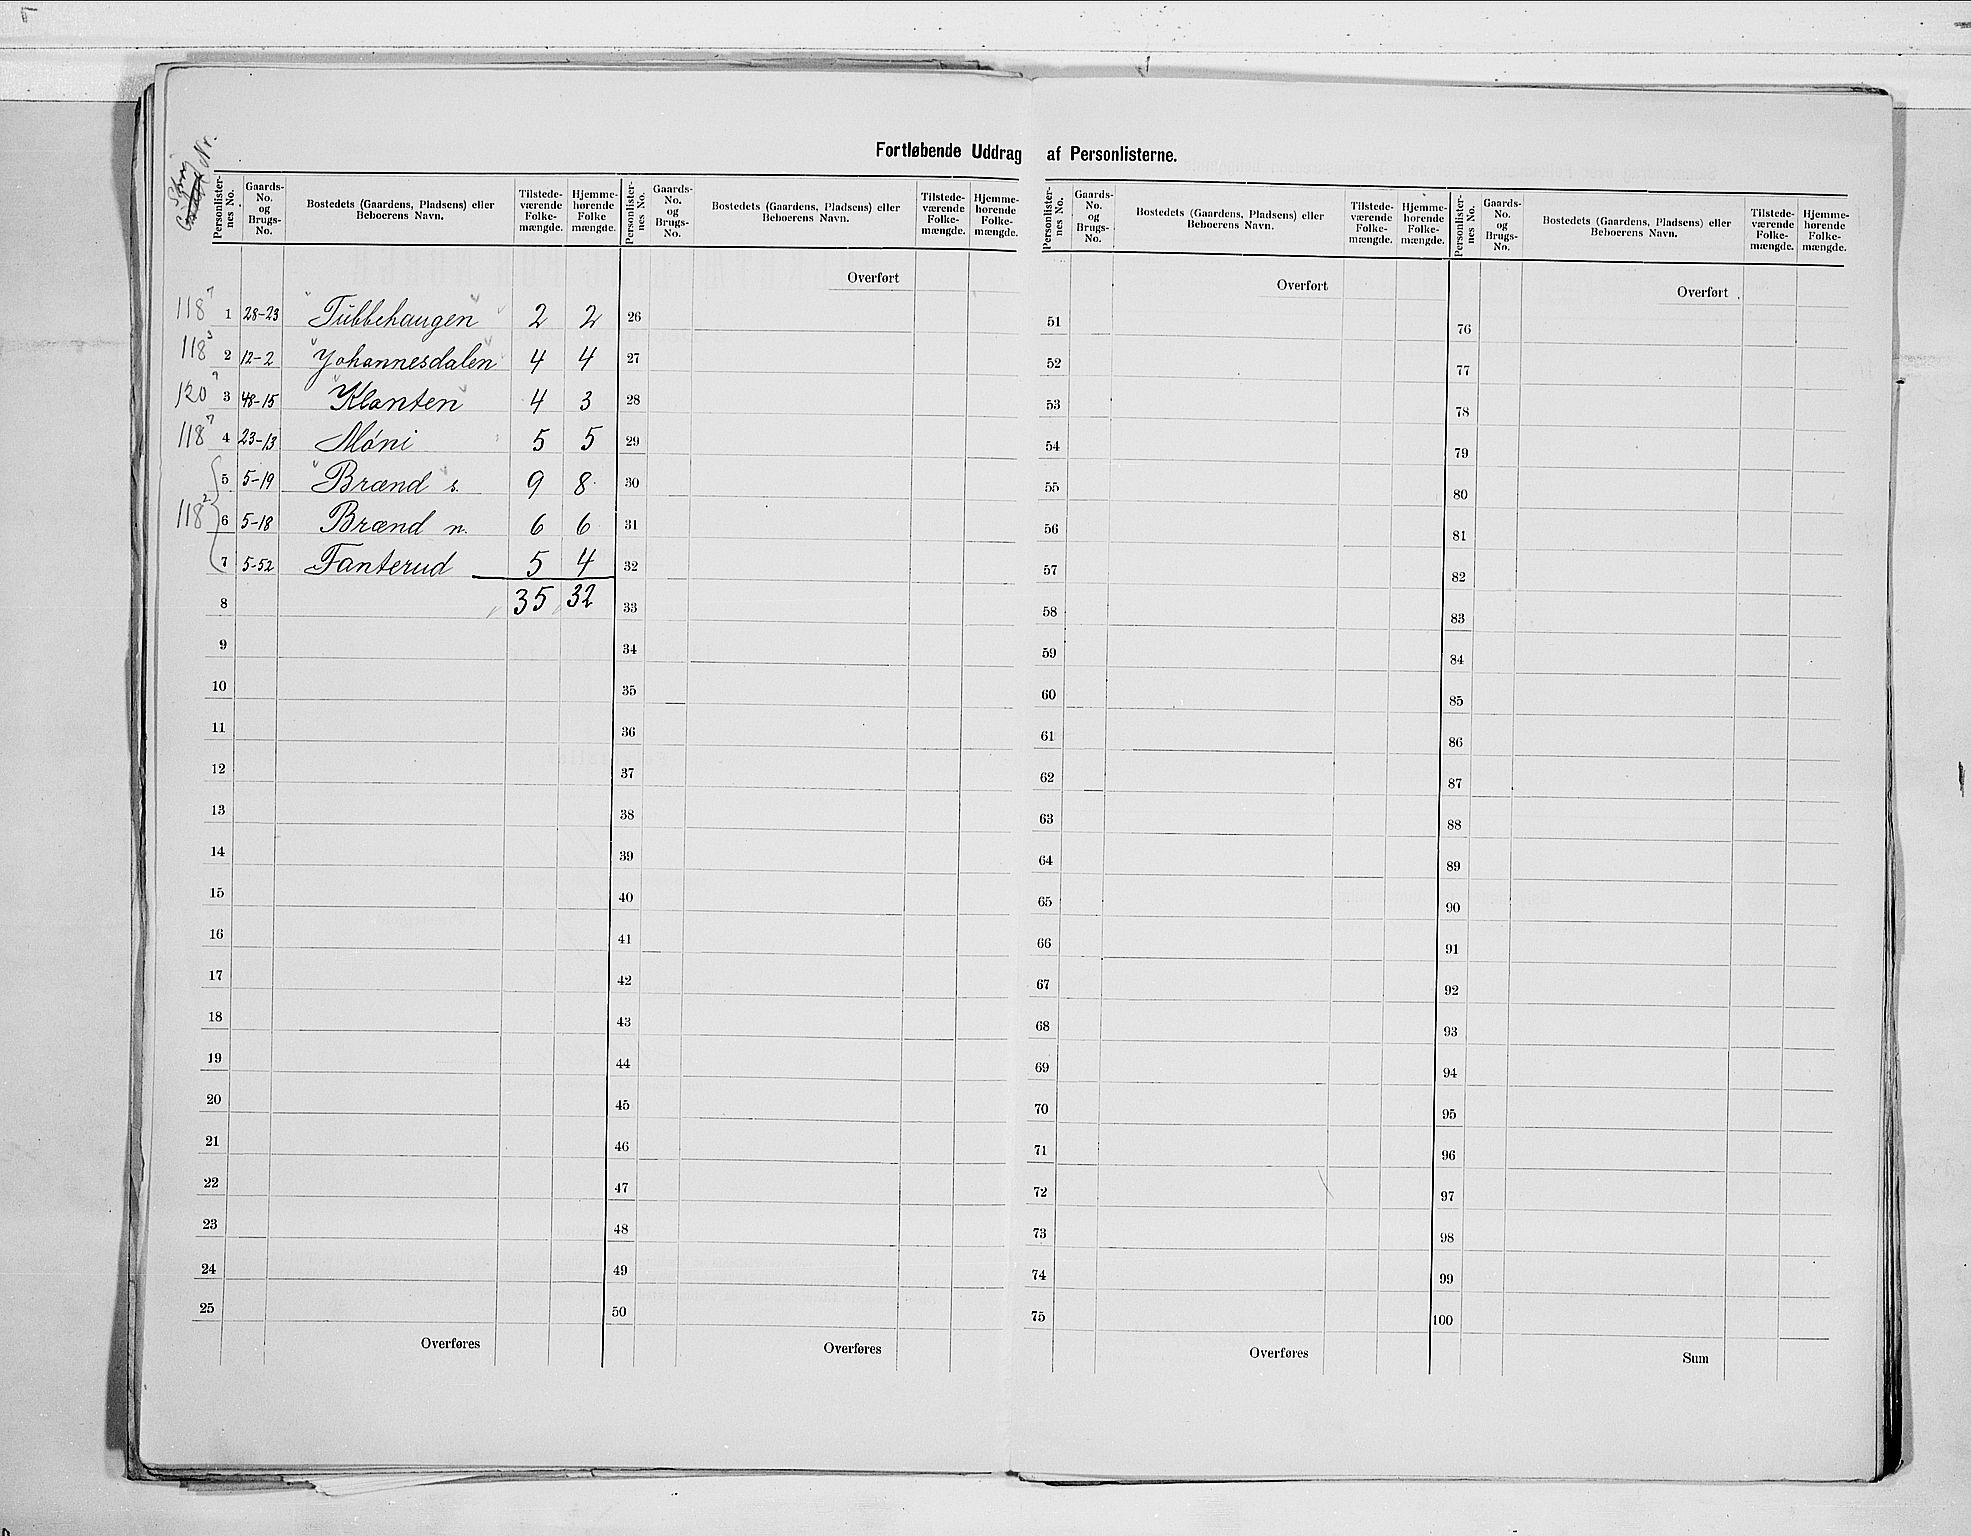 Fortløbende Uddrag af Personlisterne.
Nr.
Personlister-nes No. | Gaards-No. og Brugs-No. | Bostedets (Gaardens, Pladsens) eller Beboerens Navn. | Tilstede-værende Folke-mængde. | Hjemme-hørende Folke mængde. | Personlister-nes No. | Gaards-No. og Brugs-No. | Bostedets (Gaardens, Pladsens) eller Beboerens Navn. | Tilstede-værende Folke-mængde. | Hjemme-hørende Folke-mængde. | Personlister-nes No. | Gaards-No. og Brugs-No. | Bostedets (Gaardens, Pladsens) eller Beboerens Navn. | Tilstede-værende Folke-mængde. | Hjemme-hørende Folke-mængde. | Personlister-nes No. | Gaards-No. og Brugs-No. | Bostedets (Gaardens, Pladsens) eller Beboerens Navn. | Tilstede-værende Folke-mængde. | Hjemme-hørende Folke-mængde.
Overført Overført Overført
118⁷ 1 28-23 "Tubbehaugen" 2 2 26 51 76
118³ 2 12-2 "Johannesdalen" 4 4 27 52 77
120⁷ 3 48-15 "Klanten" 4 3 28 53 78
118⁷ 4 23-13 Møni 5 5 29 54 79
5 5-19 "Brænd" s. 9 8 30 55 80
118² 6 5-18 Brænd n. 6 6 31 56 81
7 5-52 Fanterud 5 4 32 57 82
8 35 32 33 58 83
9 34 59 84
10 35 60 85
11 36 61 86
12 37 62 87
13 38 63 88
14 39 64 89
15 40 65 90
16 41 66 91
17 42 67 92
18 43 68 93
19 44 69 94
20 45 70 95
21 46 71 96
22 47 72 97
23 48 73 98
24 49 74 99
25 50 75 100
Overføres Overføres Overføres Sum